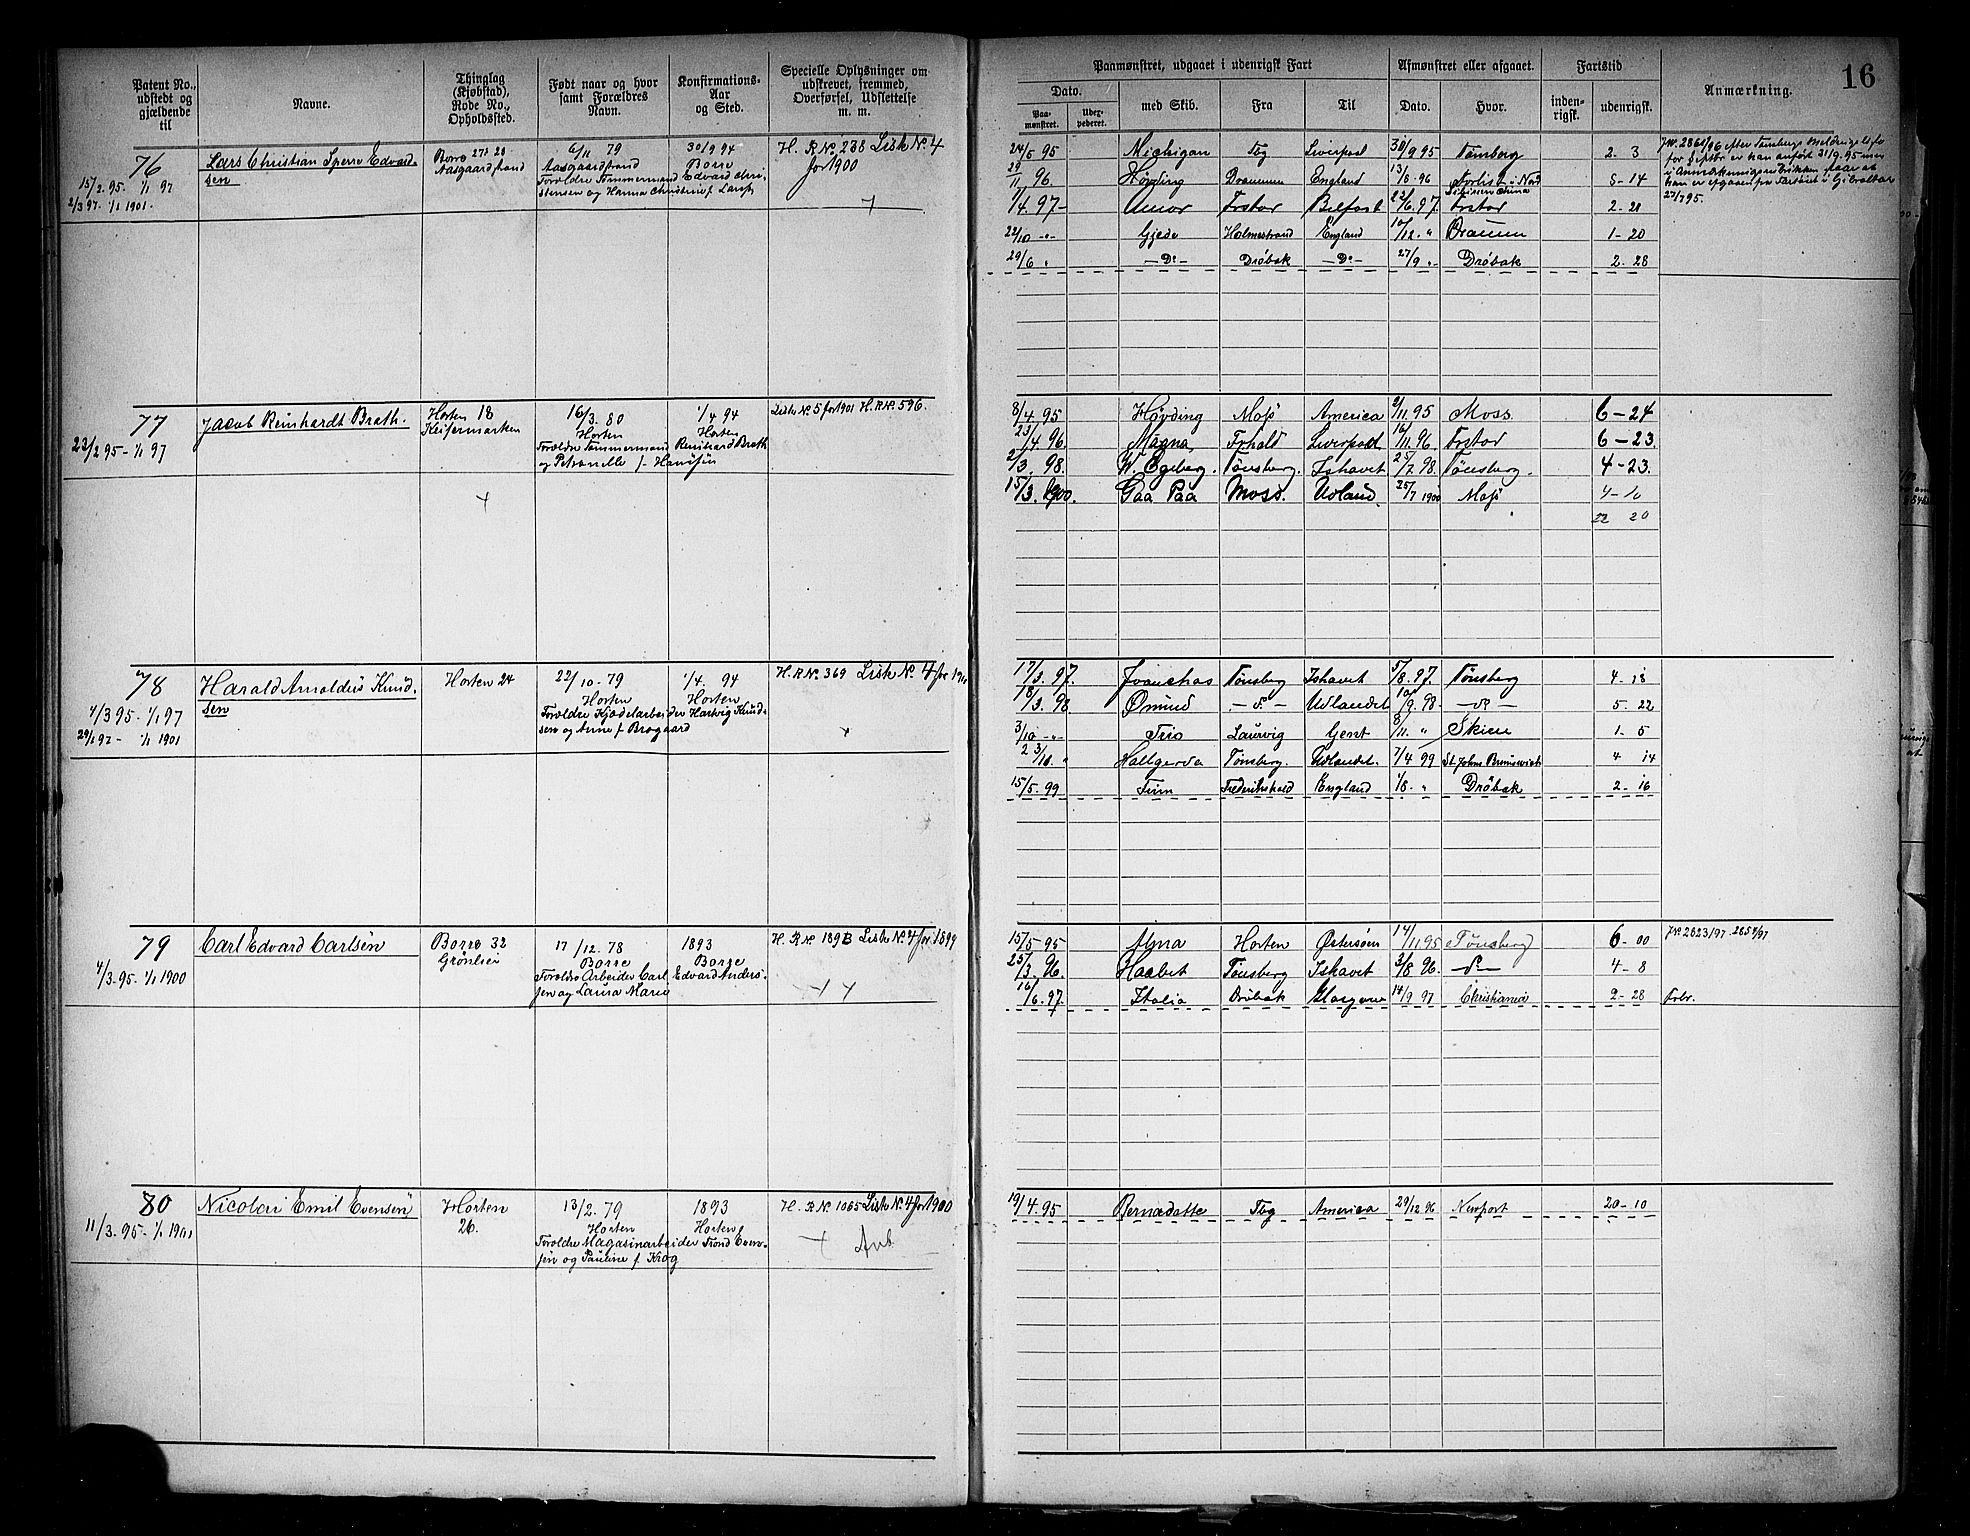 16
Patent No., udstedt og gjældende til
Navne.
Thinglag (Kjøbstad), Rode No., Opholdssted.
Født naar og hvor samt Forældres Navn.
Konfirmations-Aar og Sted.
Specielle Oplysninger om udskrevet, fremmed, Overførsel, Udslettelse m. m.
Paamønstret, udgaaet i udenrigsk Fart
Dato.
Paa-mønstret.
med Skib.
Fra
Til
Afmønstret eller afgaaet.
Dato.
Hvor.
Fartstid
inden-rigsk.
udenrigsk.
Anmærkning.
76
15/2.95. 1/1 97
2/3 97. 1/1 1901.
Lars Christian Sperre Edvard-
sen
Borre 20
Aasgaardstrand
6/11 79
Aasgaardstrand
Forældre Tømmermand Edvard Chri-
stensen og Hanna Christine f. Larsen
30/9 94
Borre
H. R. No. 238 Liste No. 4
for 1900
24/5 95 Michigan Tbg Liverpool 30/9 95 Tønsberg 2. 3
29/11 96. Høvding Drammen England 13/8 96 5-14
1/4. 97- Amor Frstad Belfast 22/6. 97. Frstad 2-21
22/10 -"- Gjede Holmestrand England 10/12. " Drammen 1-20
29/6 " -Do- Drøbak -Do- 27/9 " Drøbak 2-28
77
23/2 95 - 1/1 97
Jacob Reinhardt Brath.
Horten 18
Keisermarken
16/3. 80
Horten
Forældre Tømmermand Reinhard Brath
og Petronille f. Hansen
1/4 94
Horten
Liste No. 5 for 1901 H. R. No. 596.
8/4. 95 Høvding Moss America 2/11. 95 Moss. 6-24
23/4. 96. Magna Frhald Liverpool 16/11. 96. Frstad 6-23.
2/3. 98. W. Egeberg. Tønsberg. Ishavet 25/7. 98. Tønsberg. 4-23.
15/3. 1900. Gaa Paa Moss. Udland. 25/7 1900 Moss 4-10
22 20
78
4/3 95. 1/1 97
29/1 97 - 1/1 1901
Harald Arnoldus Knud-
sen
Horten 24
22/10. 79
Horten
Forældre Kjedelarbeider Hartvig Knud-
sen og Anne f. Brogaard
1/4. 94
Horten
H. R. No. 369 Liste No. 4 for 1900
17/3. 97. Tønsberg Ishavet 5/8. 97. Tønsberg 4-18
18/3. 98 Ømund -do.- Udlandet 10/9. 98 -do- 5. 22
3/10 -"- Trio Laurvig Gent 8/11. " Skien 1-5
23/10. " Hallgerda Tønsberg. Udlandet. 7/4 99 St. Johns Brunswick 4 14
15/5. 99 Trim Frederikshald England 1/8. " Drøbak 2-16
79
4/3. 95. 1/1 1900
Carl Edvard Carlsen
Borre 32
Grønlien
17/12. 78
Borre
Forældre Arbeider Carl Edvard Anders-
sen og Laura Marie
1893
Borre
H. R. No. 189 B Liste No. 4 for 1899
15/5. 95 Alma Horten Østersøen 14/11. 95 Tønsberg 6-00 JNo. 2623/97. 2654/97
25/3. 96. Haabet Tønsberg Ishavet 3/8 96. -do- 4-8
16/6. 97. Italia Drøbak Glasgow 14/9 97 Christiania 2-28
80
11/3. 95. 1/1 1901
Nicolai Emil Evensen
Horten
26.
13/2. 79
Horten
Forældre Magasinarbeider Trond Even-
sen og Pauline f. Krog
1893
Horten
H. R. No. 1065 Liste No. 4 for 1900
19/4. 95 Bernadotte Tbg America 29/12. 96 Newport 20-10